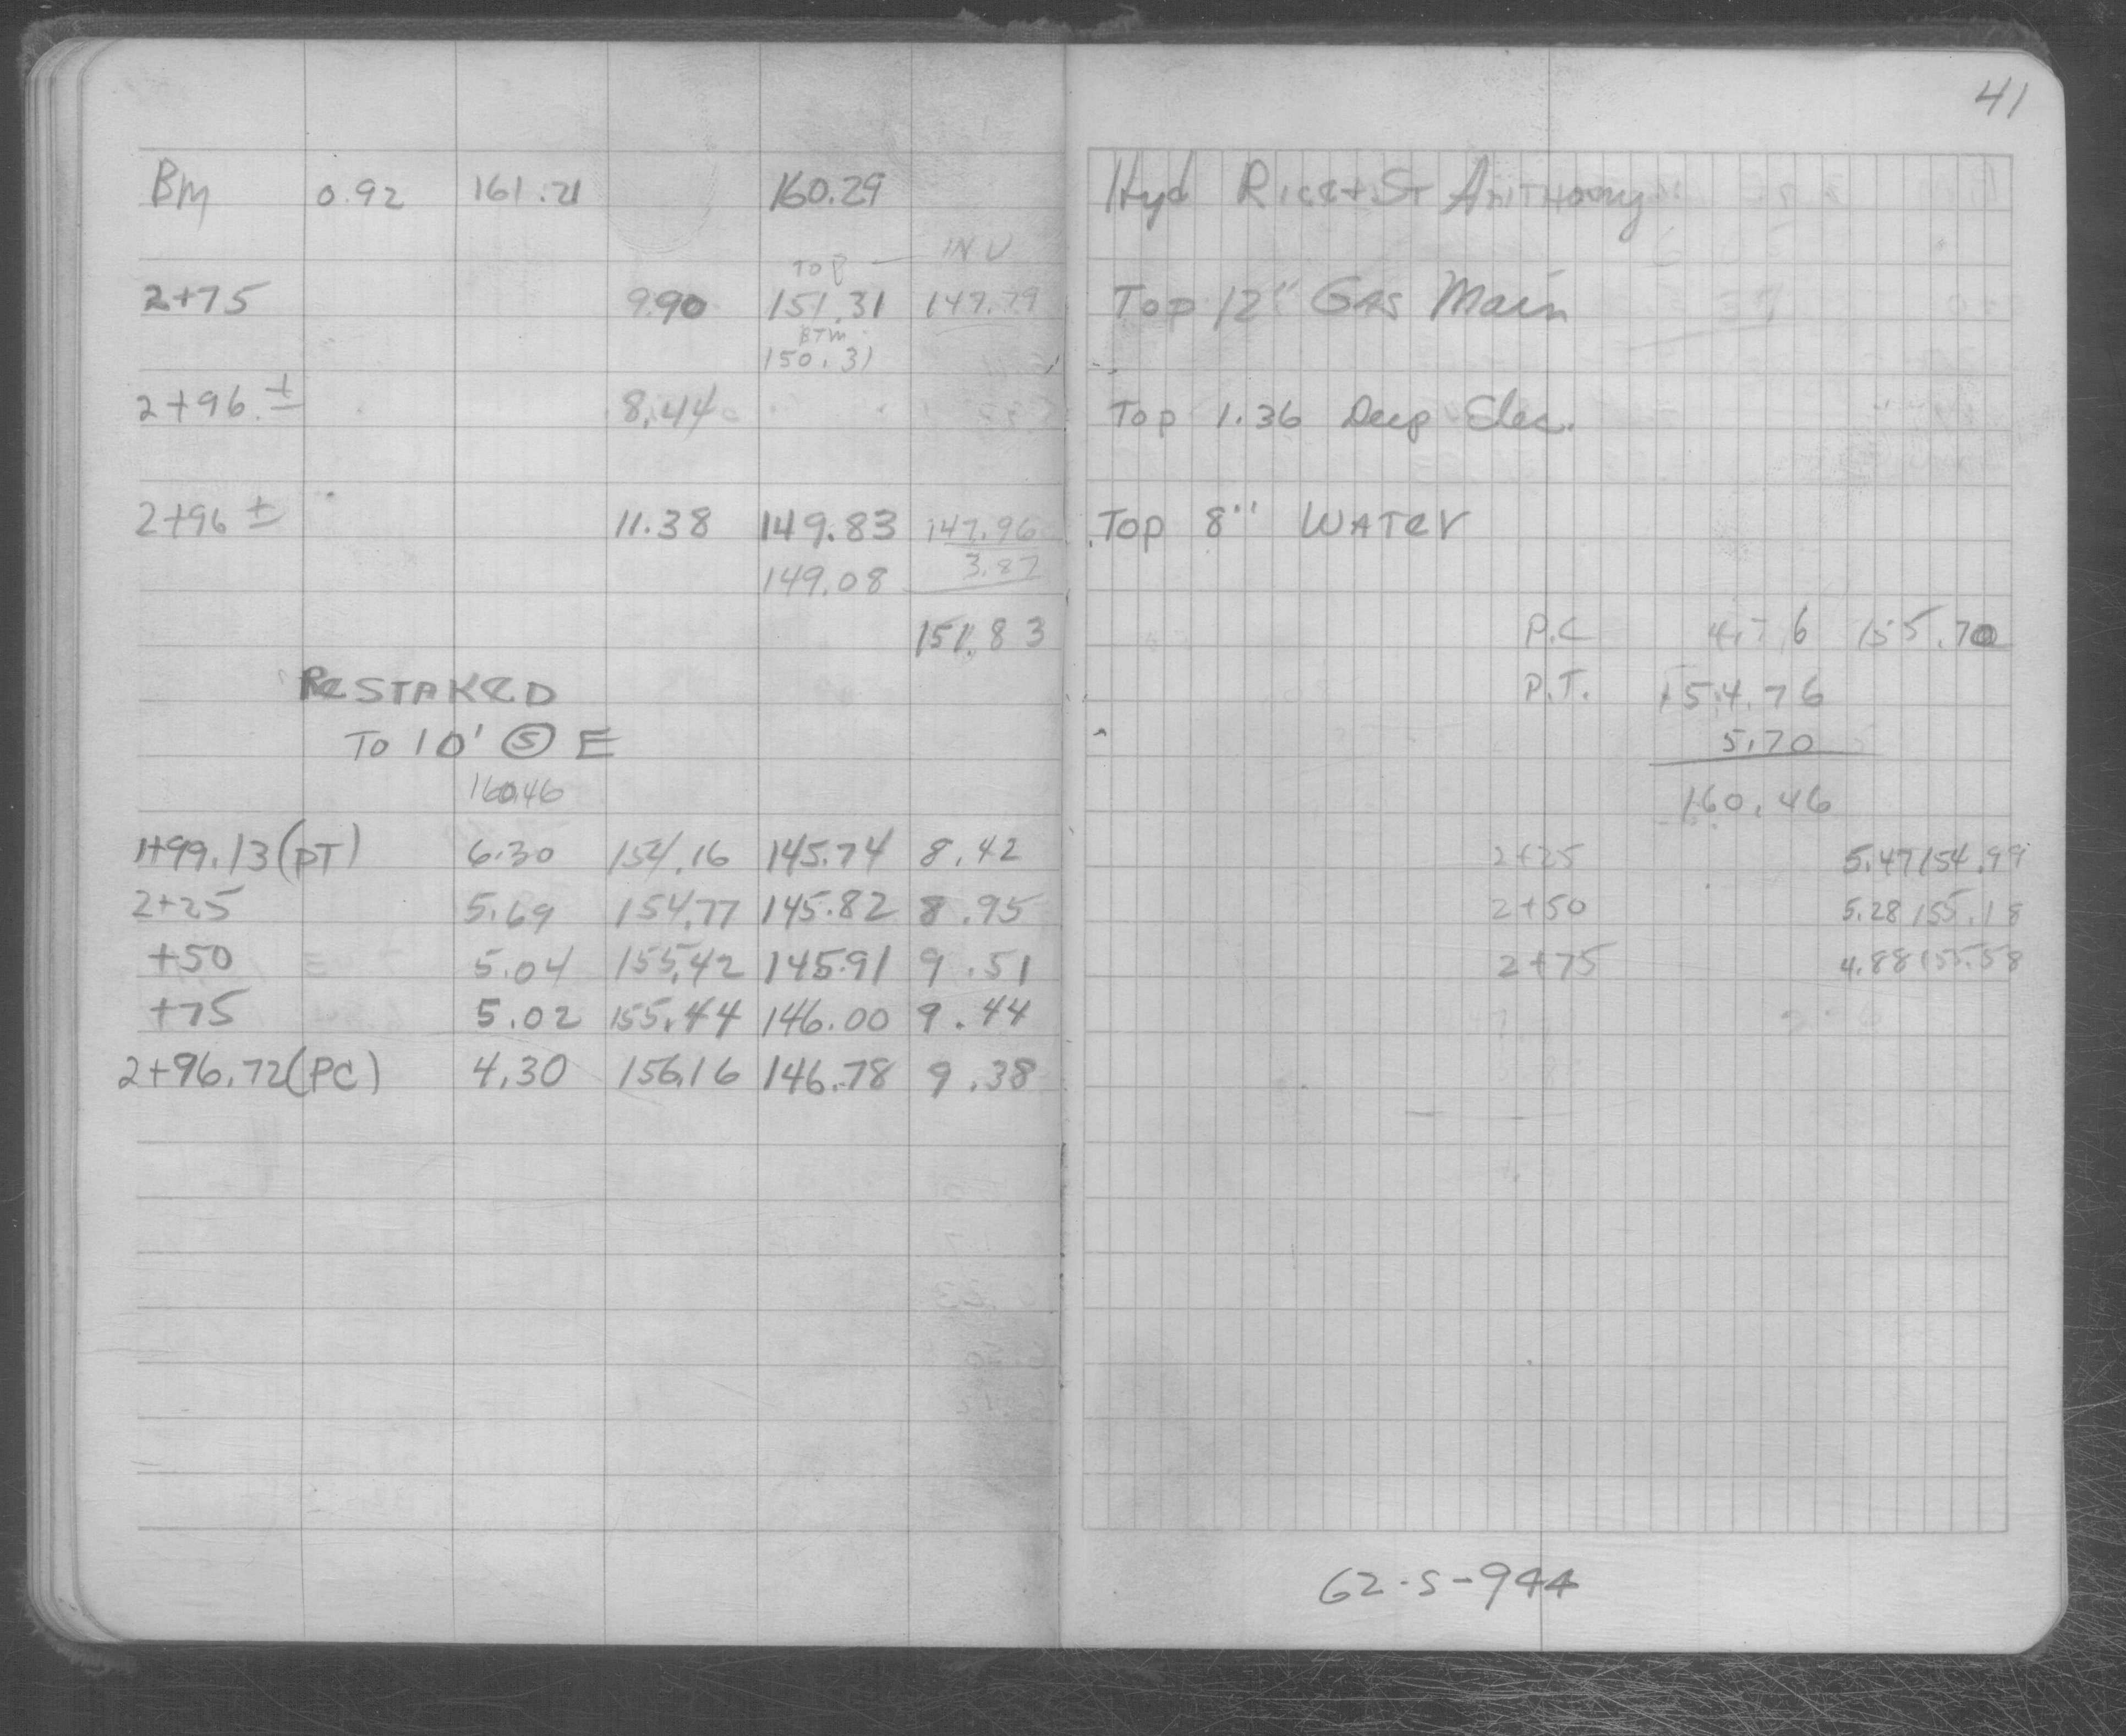 41
Bm 0.92 161.21 160.29 Hyd Rice + St Anthony
TOP — INV
2+75 9.90 151.31 147.79 Top 12" Gas Main
BTM
150.31
2+96.± 8.44 Top 1.36 Deep Elec.
2+96± 11.38 149.83 147.96 Top 8" Water
149.08 3.87
151.83 P.C 4.76 155.70
Restaked P.T. 154.76
To 10' Ⓢ E 5.70
160.46 160.46
1+99.13 (PT) 6.30 154.16 145.74 8.42 2+25 5.47 154.99
2+25 5.69 154.77 145.82 8.95 2+50 5.28 155.18
+50 5.04 155.42 145.91 9.51 2+75 4.88 155.58
+75 5.02 155.44 146.00 9.44
2+96.72 (PC) 4.30 156.16 146.78 9.38
62-S-944